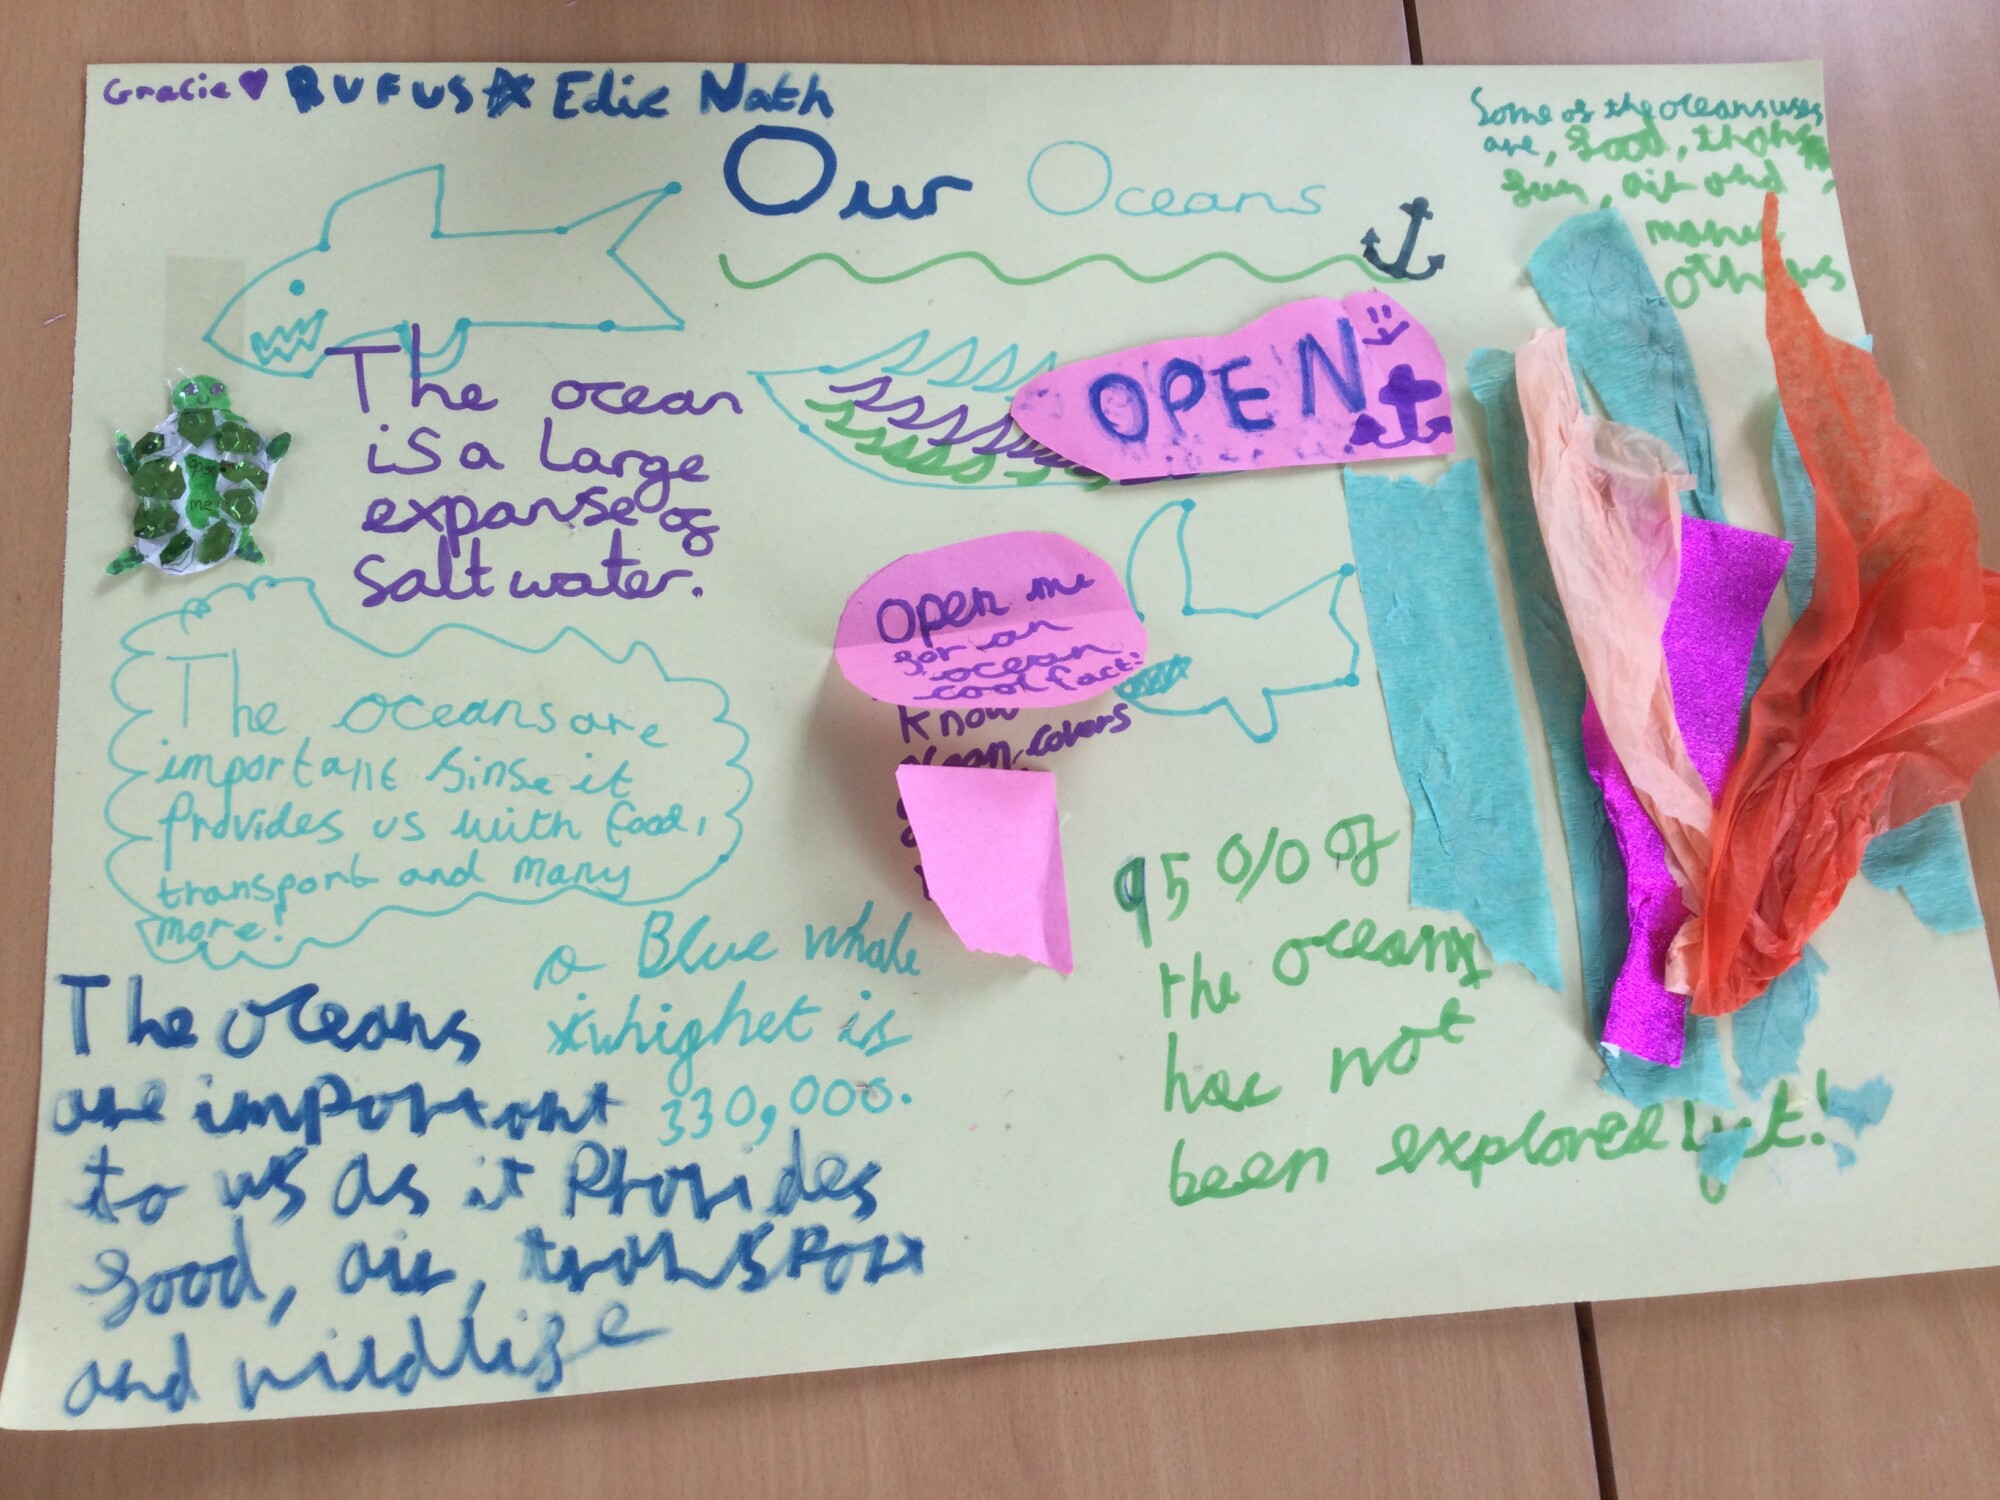 Gracie RUFUS Edie Nath
Our Oceans
Some of the oceans uses
are, food,
air and
others
OPEN
The ocean
is a large
expanse of
Salt water.
open
me
Open me
for an
ocean
cool fact!
Know
ocean covers
The oceans are
important sinse it
Provides us with food,
transport and many
more!
a Blue whale
whighet is
330,000.
95% of
the oceans
has not
been explored yet!
The oceans
are important
to us as it Provides
food, air, transport
and wildlife